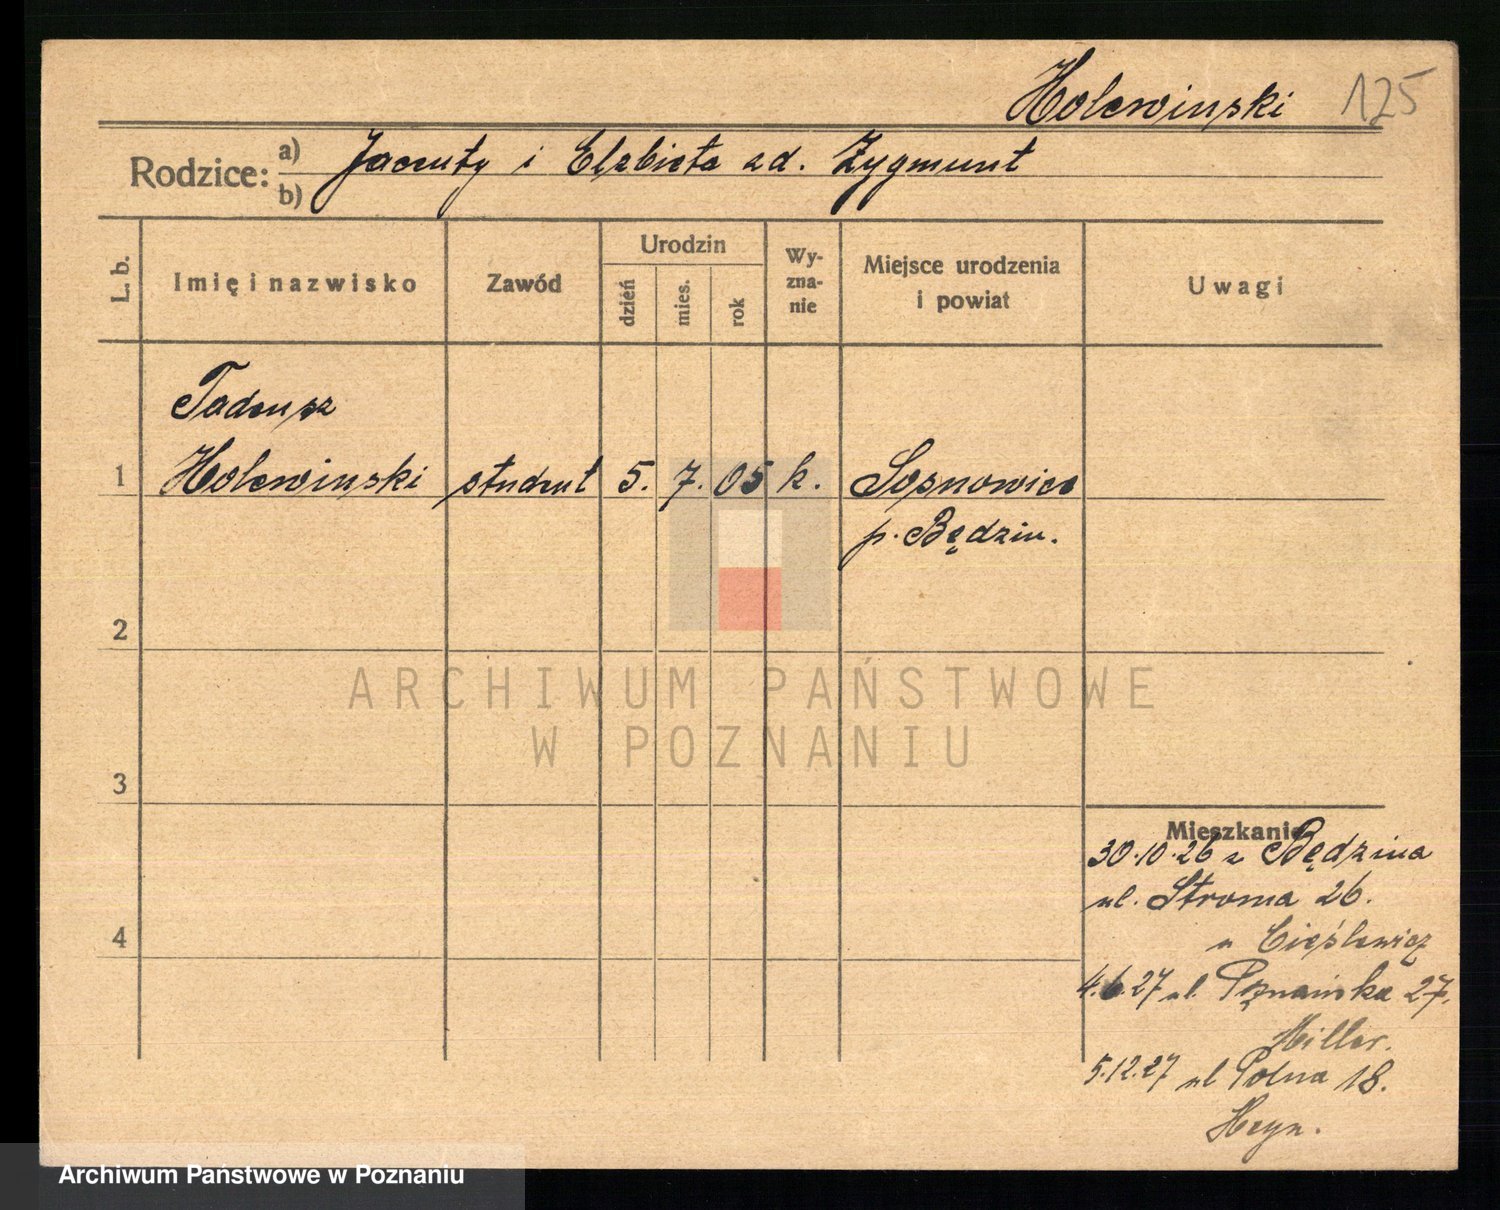 Holewinski 125
Rodzice: a) Jacenty i Elzbieta zd. Zygmunt
b)
L. b.
Imię i nazwisko
Zawód
Urodzin
dzień
mies.
rok
Wy-
zna-
nie
Miejsce urodzenia
i powiat
Uwagi
Tadeusz
1 Holewinski student 5. 7. 05 k. Sosnowice
p. Będzin.
2
3
4
Mieszkanie
30.10.26 z Będzina
ul. Stroma 26.
u Cieślewicz
4.6.27 ul. Poznańska 27.
Miller.
5.12.27 ul Polna 18.
Heyn.
ARCHIWUM PAŃSTWOWE
W POZNANIU
Archiwum Państwowe w Poznaniu